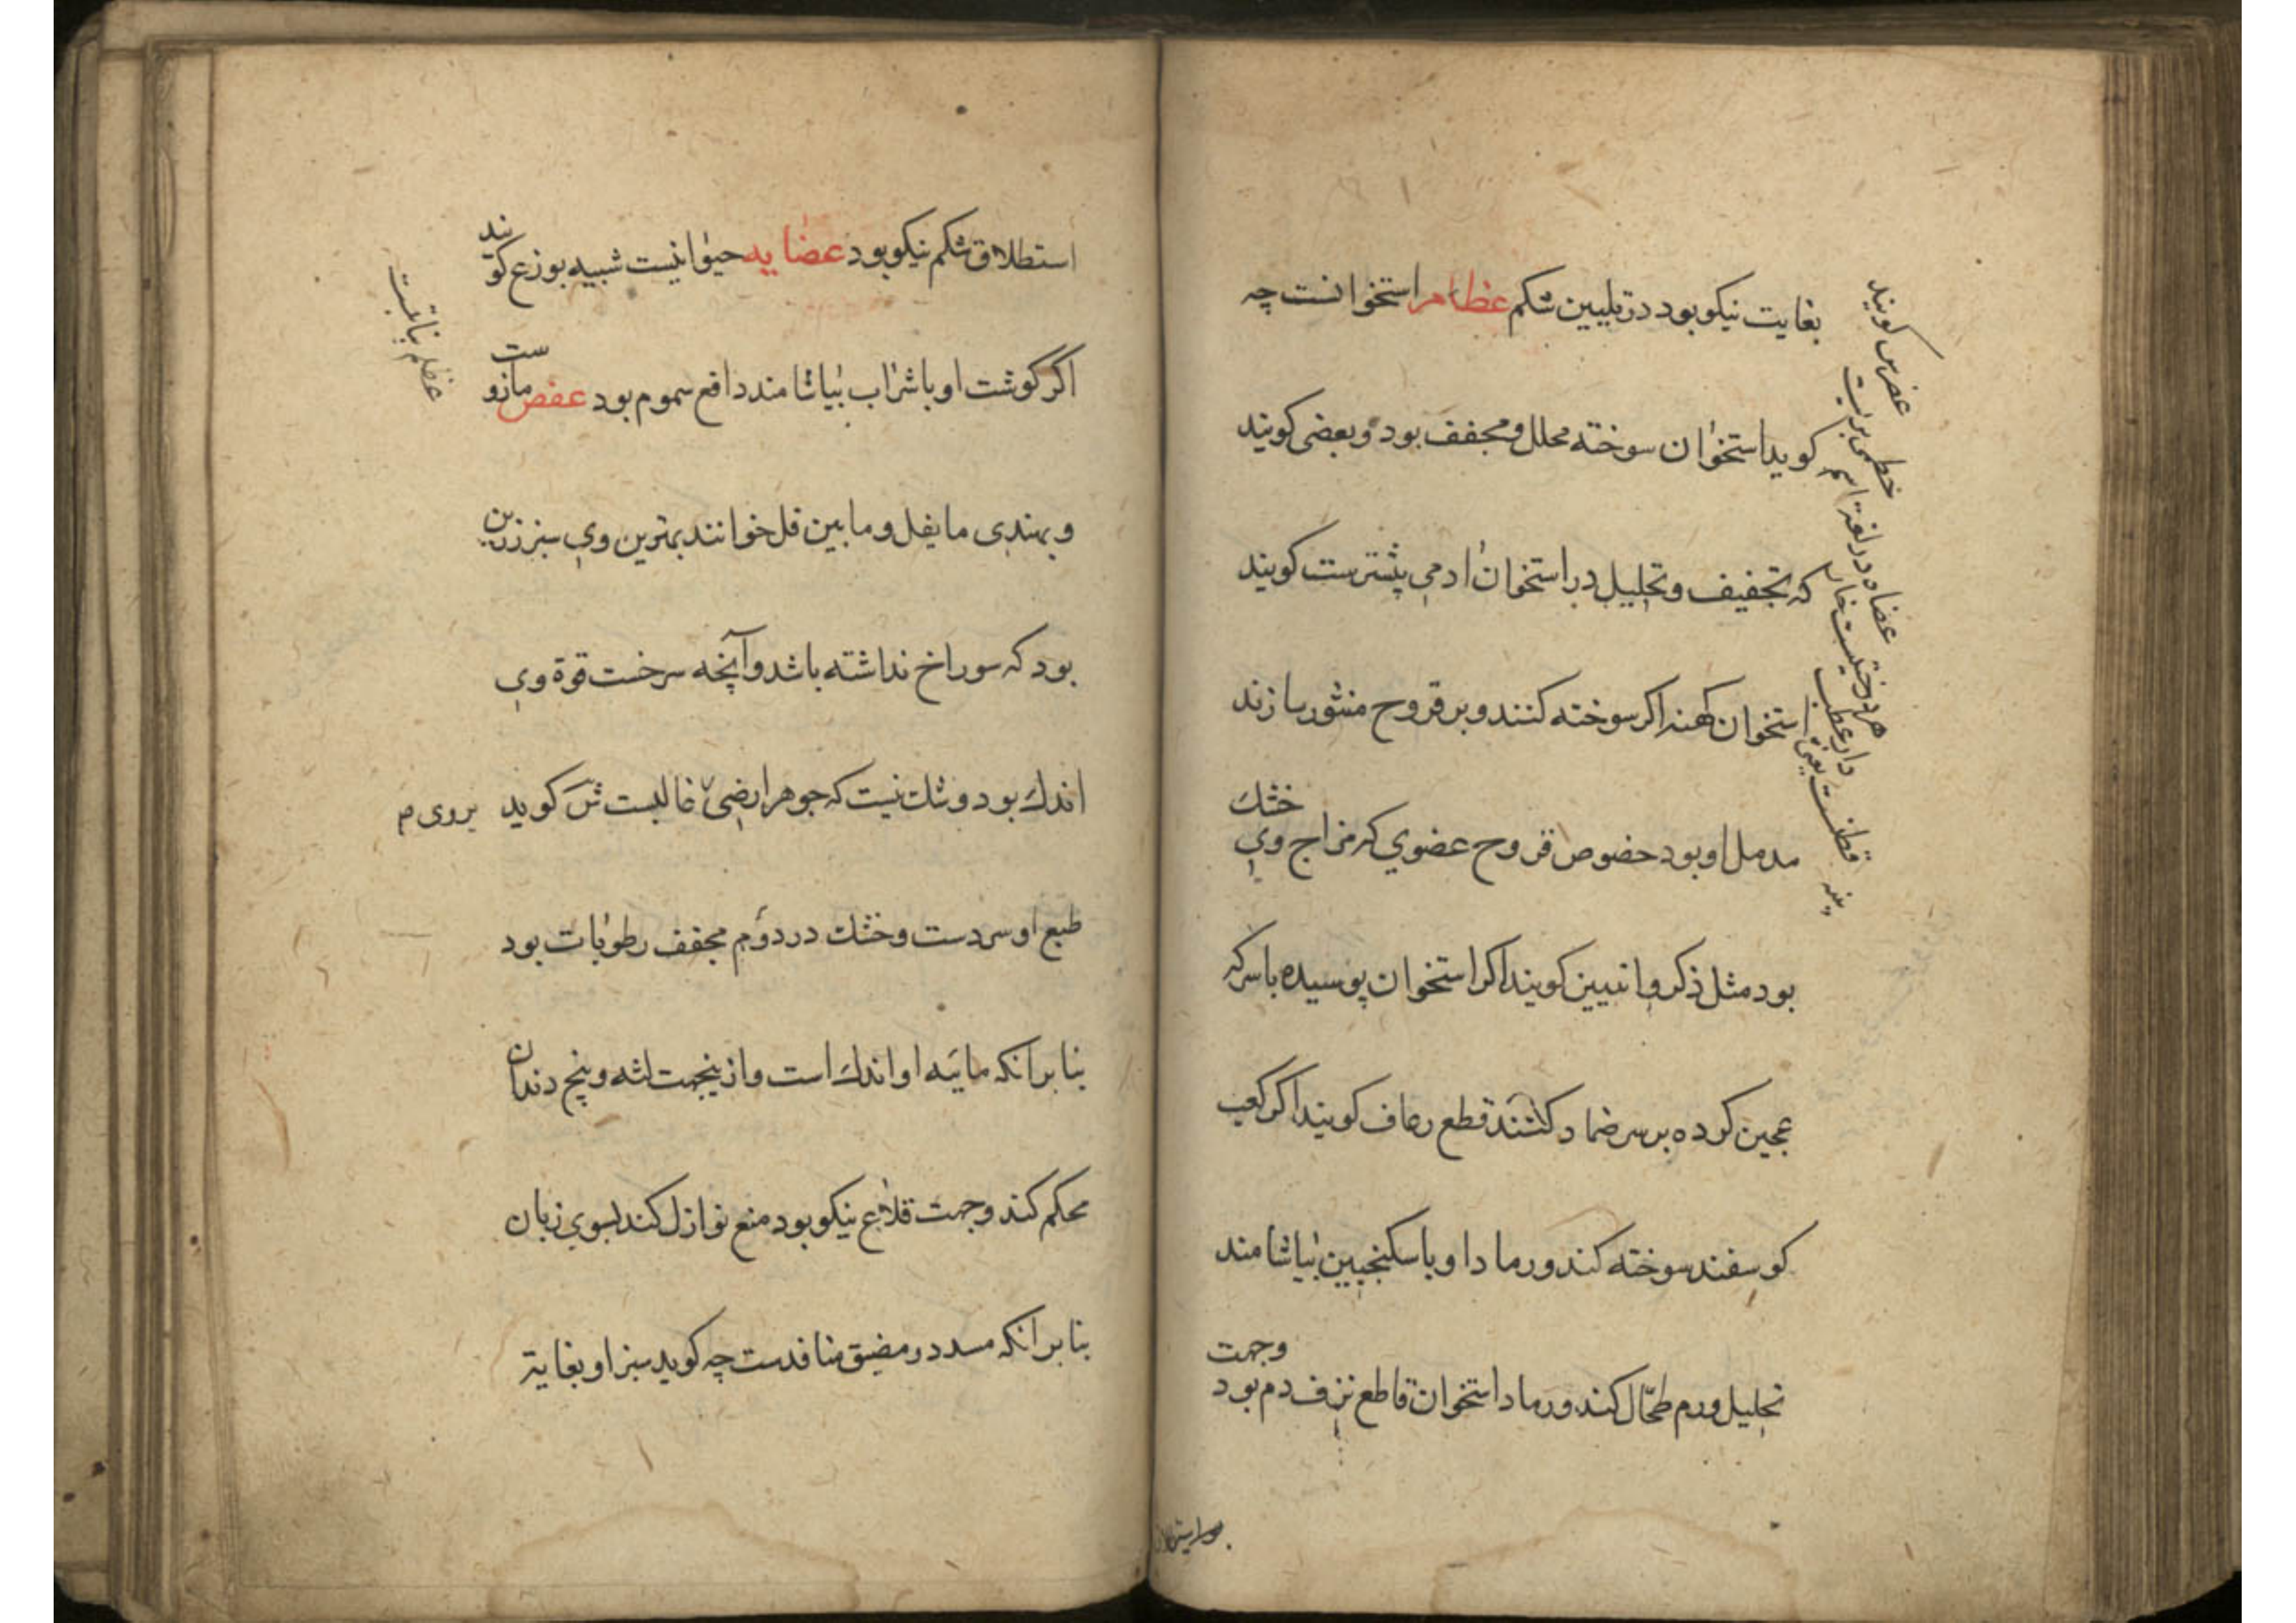 بغایت نیکو بود در تلیین شکم عظام استخوانست چه
کوید استخوان سوخته محلل و مجفف بود و بعضی کویند
که تجفیف و تحلیل در استخوان ادمی پیشترست کویند
استخوان کهنه اکر سوخته کنند و بر قروح منثور سازند
مدمل او بود خصوص قروح عضوی که مزاج وی خشك
بود مثل ذکر و انثیین کویند اکر استخوان پوسیده با سرکه
عجین کرده بر سر ضماد کنند قطع رعاف کویند اکر کعب
کوسفند سوخته کنند و رماد او با سکنجبین بیاشامند
تحلیل ورم طحال کند و رماد استخوان قاطع نزف دم بود وجهت
عضرس کویند
خطمی بریست
عضاه در لغة اسم
هر درختیست خار
دار عطب
قطنست یعنی
پنبه
استطلاق شکم نیکو بود عضایه حیوانیست شبیه بوزع کویند
اکر کوشت او با شراب بیاشامند دافع سموم بود عفص مازوست
و بهندی مایفل و مابین فل خوانند بهترین وی سبز زرین
بود که سوراخ نداشته باشد و آنچه سرخست قوة وی
اندك بود و شك نیست که جوهر ارضی غالبست ش کوید
طبع او سردست و خشك در دوم مجفف رطوبات بود
بنابر انکه مائیه او اندك است و ازینجهت لثه و بیخ دندان
محکم کند و جهت قلاع نیکو بود منع نوازل کند بسوی زبان
بنابر انکه مسدد و مضیق منافذست چه کوید سبز او بغایة
عظلم نباتیست
بروی م